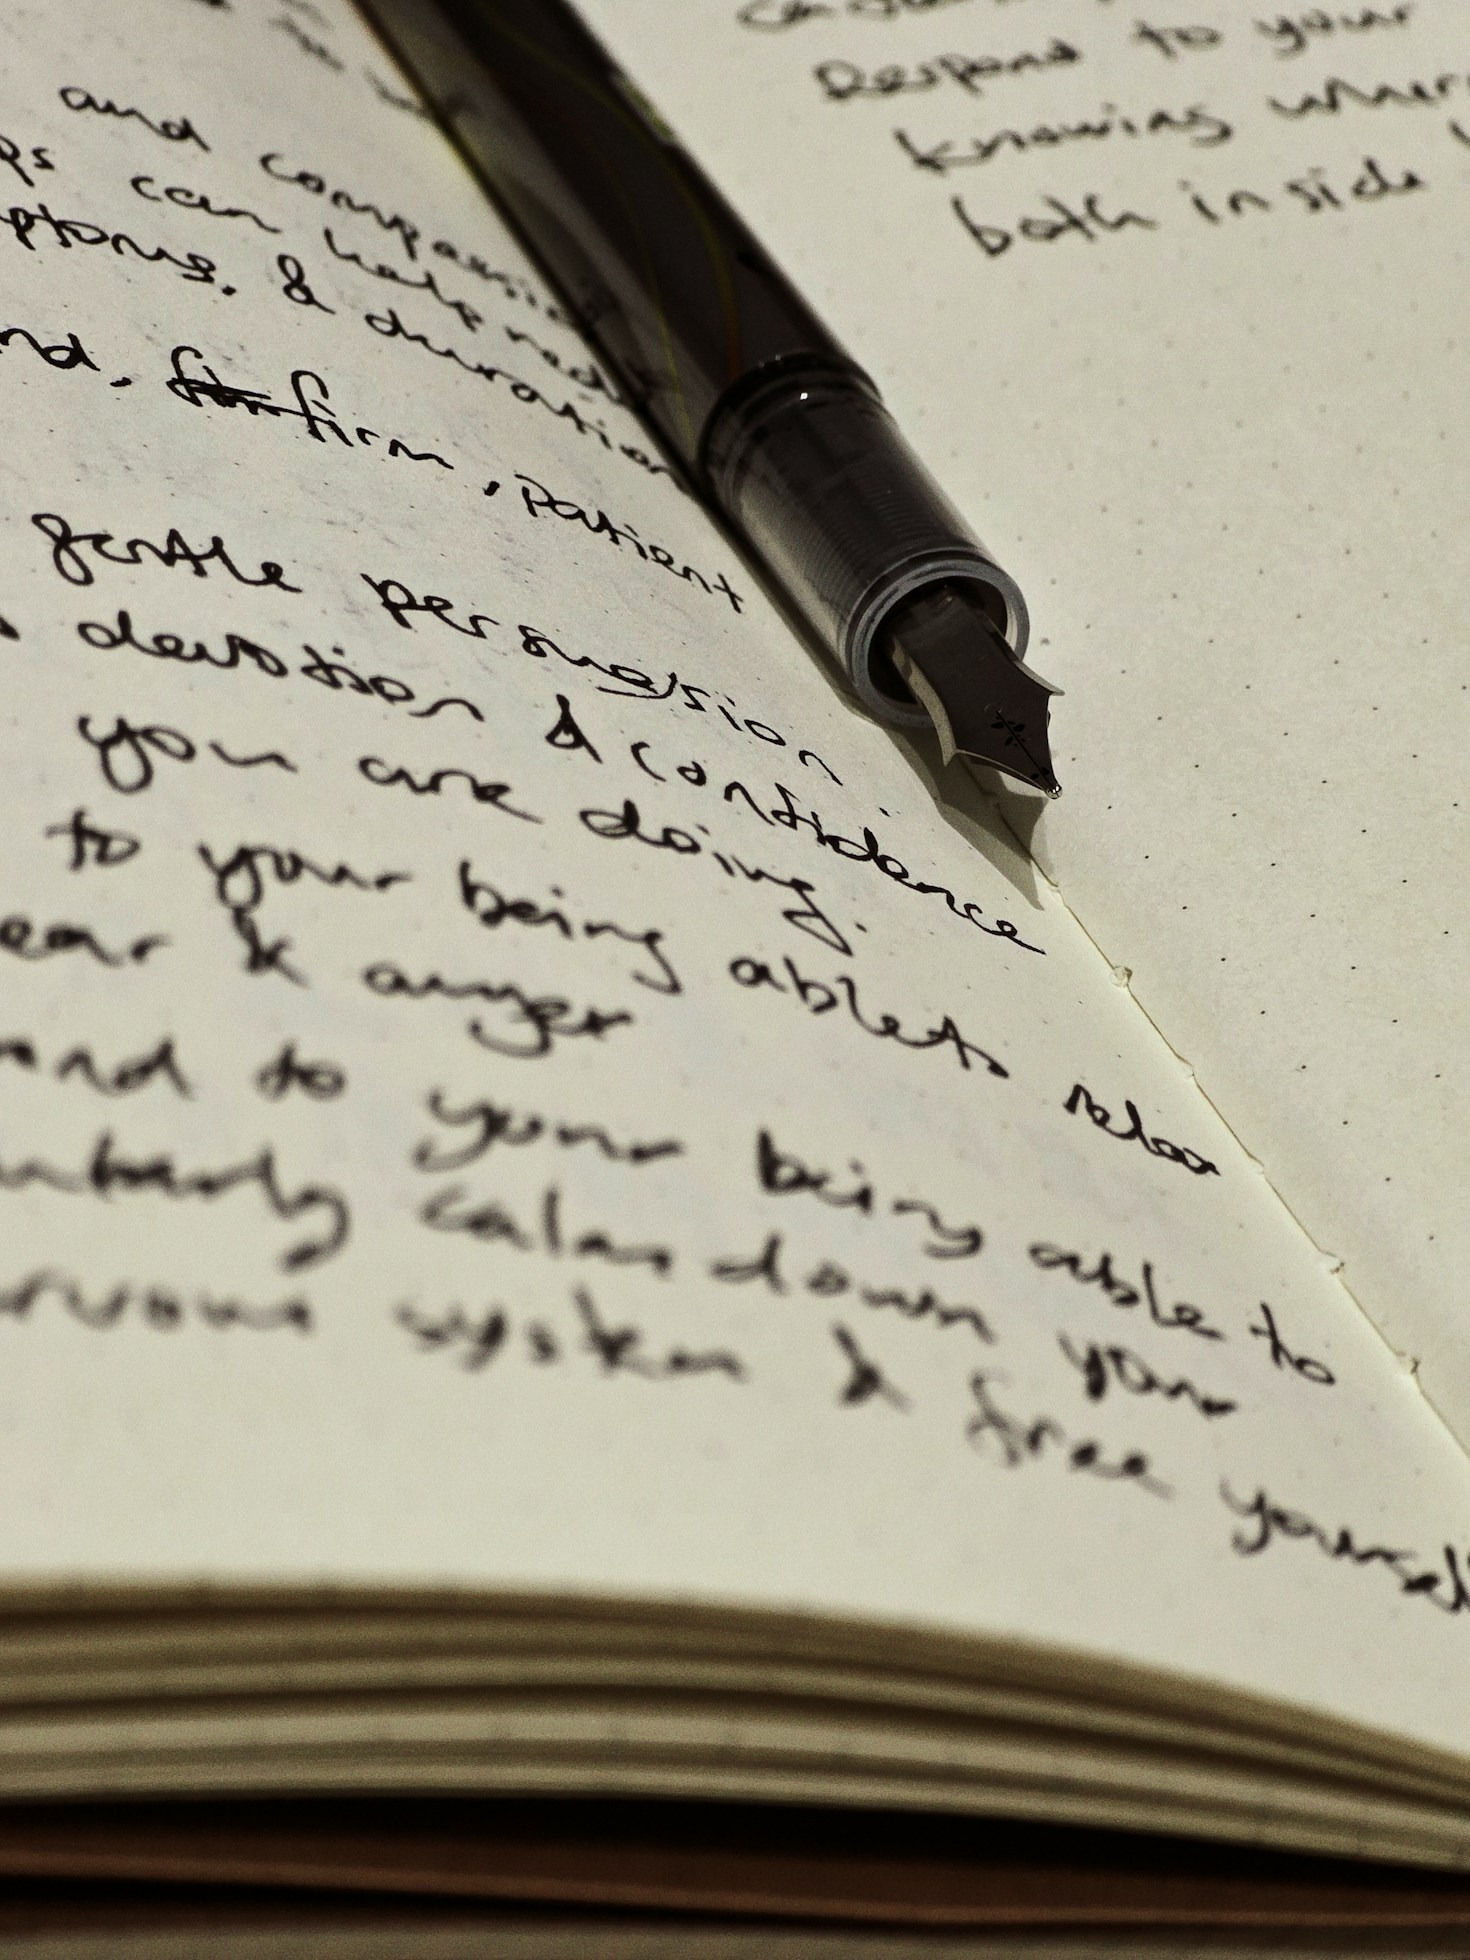 and compassion
ps can help reduc
ptoms. & duration
nd, firm, patient
gentle persuasion
s devotion & confidence
you are doing.
to your being able to relax
ear & anger
and to your being able to
calm down your
rvous system & free yourself
Respond to your
knowing wher
both inside